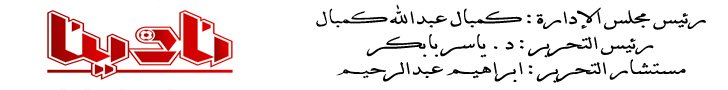 رئيس مجلس الإدارة : كمبال عبد الله كمبال
رئيس التحرير : د . ياسر بابكر
مستشار التحرير : ابراهيم عبد الرحيم
نادينا